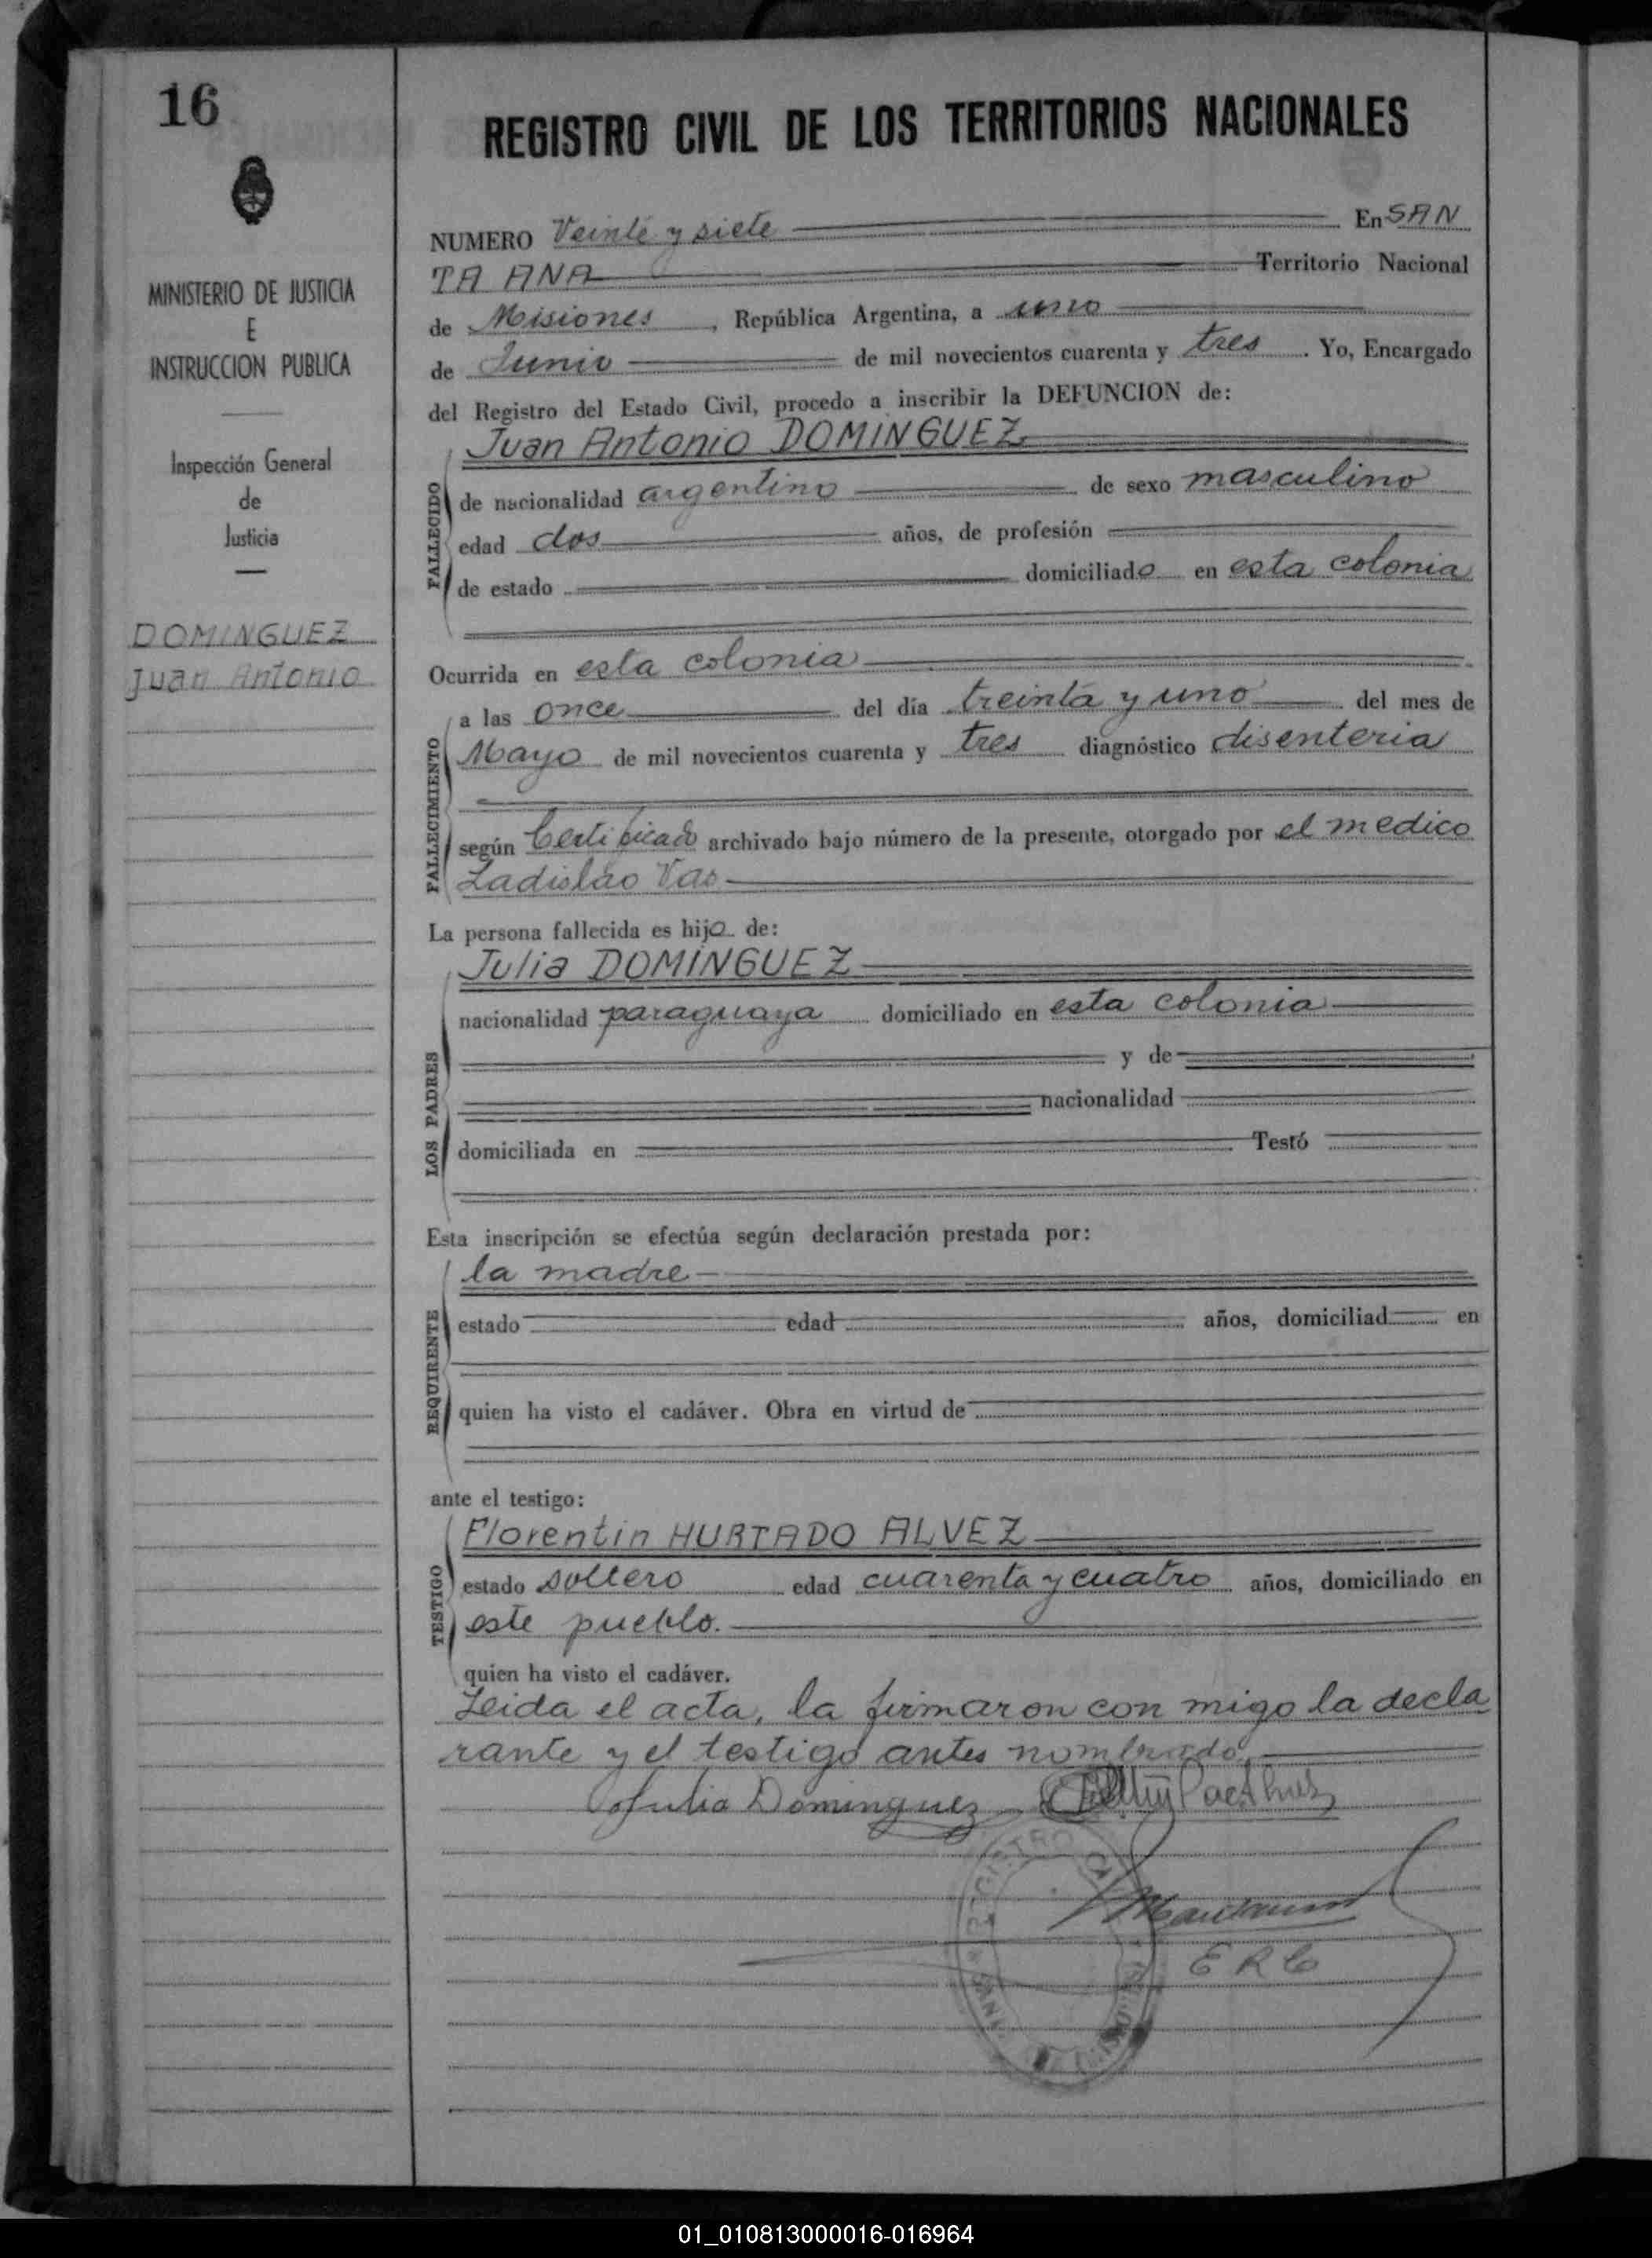 16
MINISTERIO DE JUSTICIA
E
INSTRUCCION PUBLICA
Inspección General
de
Justicia
DOMINGUEZ
Juan Antonio
REGISTRO CIVIL DE LOS TERRITORIOS NACIONALES
NUMERO Veinte y siete En SAN
TA ANA Territorio Nacional
de Misiones, República Argentina, a uno
de Junio de mil novecientos cuarenta y tres. Yo, Encargado
del Registro del Estado Civil, procedo a inscribir la DEFUNCION de:
FALLECIDO
Juan Antonio DOMINGUEZ
de nacionalidad argentino de sexo masculino
edad dos años, de profesión
de estado domiciliado en esta colonia
Ocurrida en esta colonia
FALLECIMIENTO
a las once del día treinta y uno del mes de
Mayo de mil novecientos cuarenta y tres diagnóstico disenteria
según Certificado archivado bajo número de la presente, otorgado por el medico
Ladislao Vas
La persona fallecida es hijo de:
LOS PADRES
Julia DOMINGUEZ
nacionalidad paraguaya domiciliado en esta colonia
y de
nacionalidad
domiciliada en Testó
Esta inscripción se efectúa según declaración prestada por:
REQUIRENTE
la madre
estado edad años, domiciliad en
quien ha visto el cadáver. Obra en virtud de
ante el testigo:
TESTIGO
Florentin HURTADO ALVEZ
estado soltero edad cuarenta y cuatro años, domiciliado en
este pueblo.
quien ha visto el cadáver.
Leida el acta, la firmaron con migo la decla
rante y el testigo antes nombrado.
Julia Dominguez
REGISTRO
E R C
01_010813000016-016964